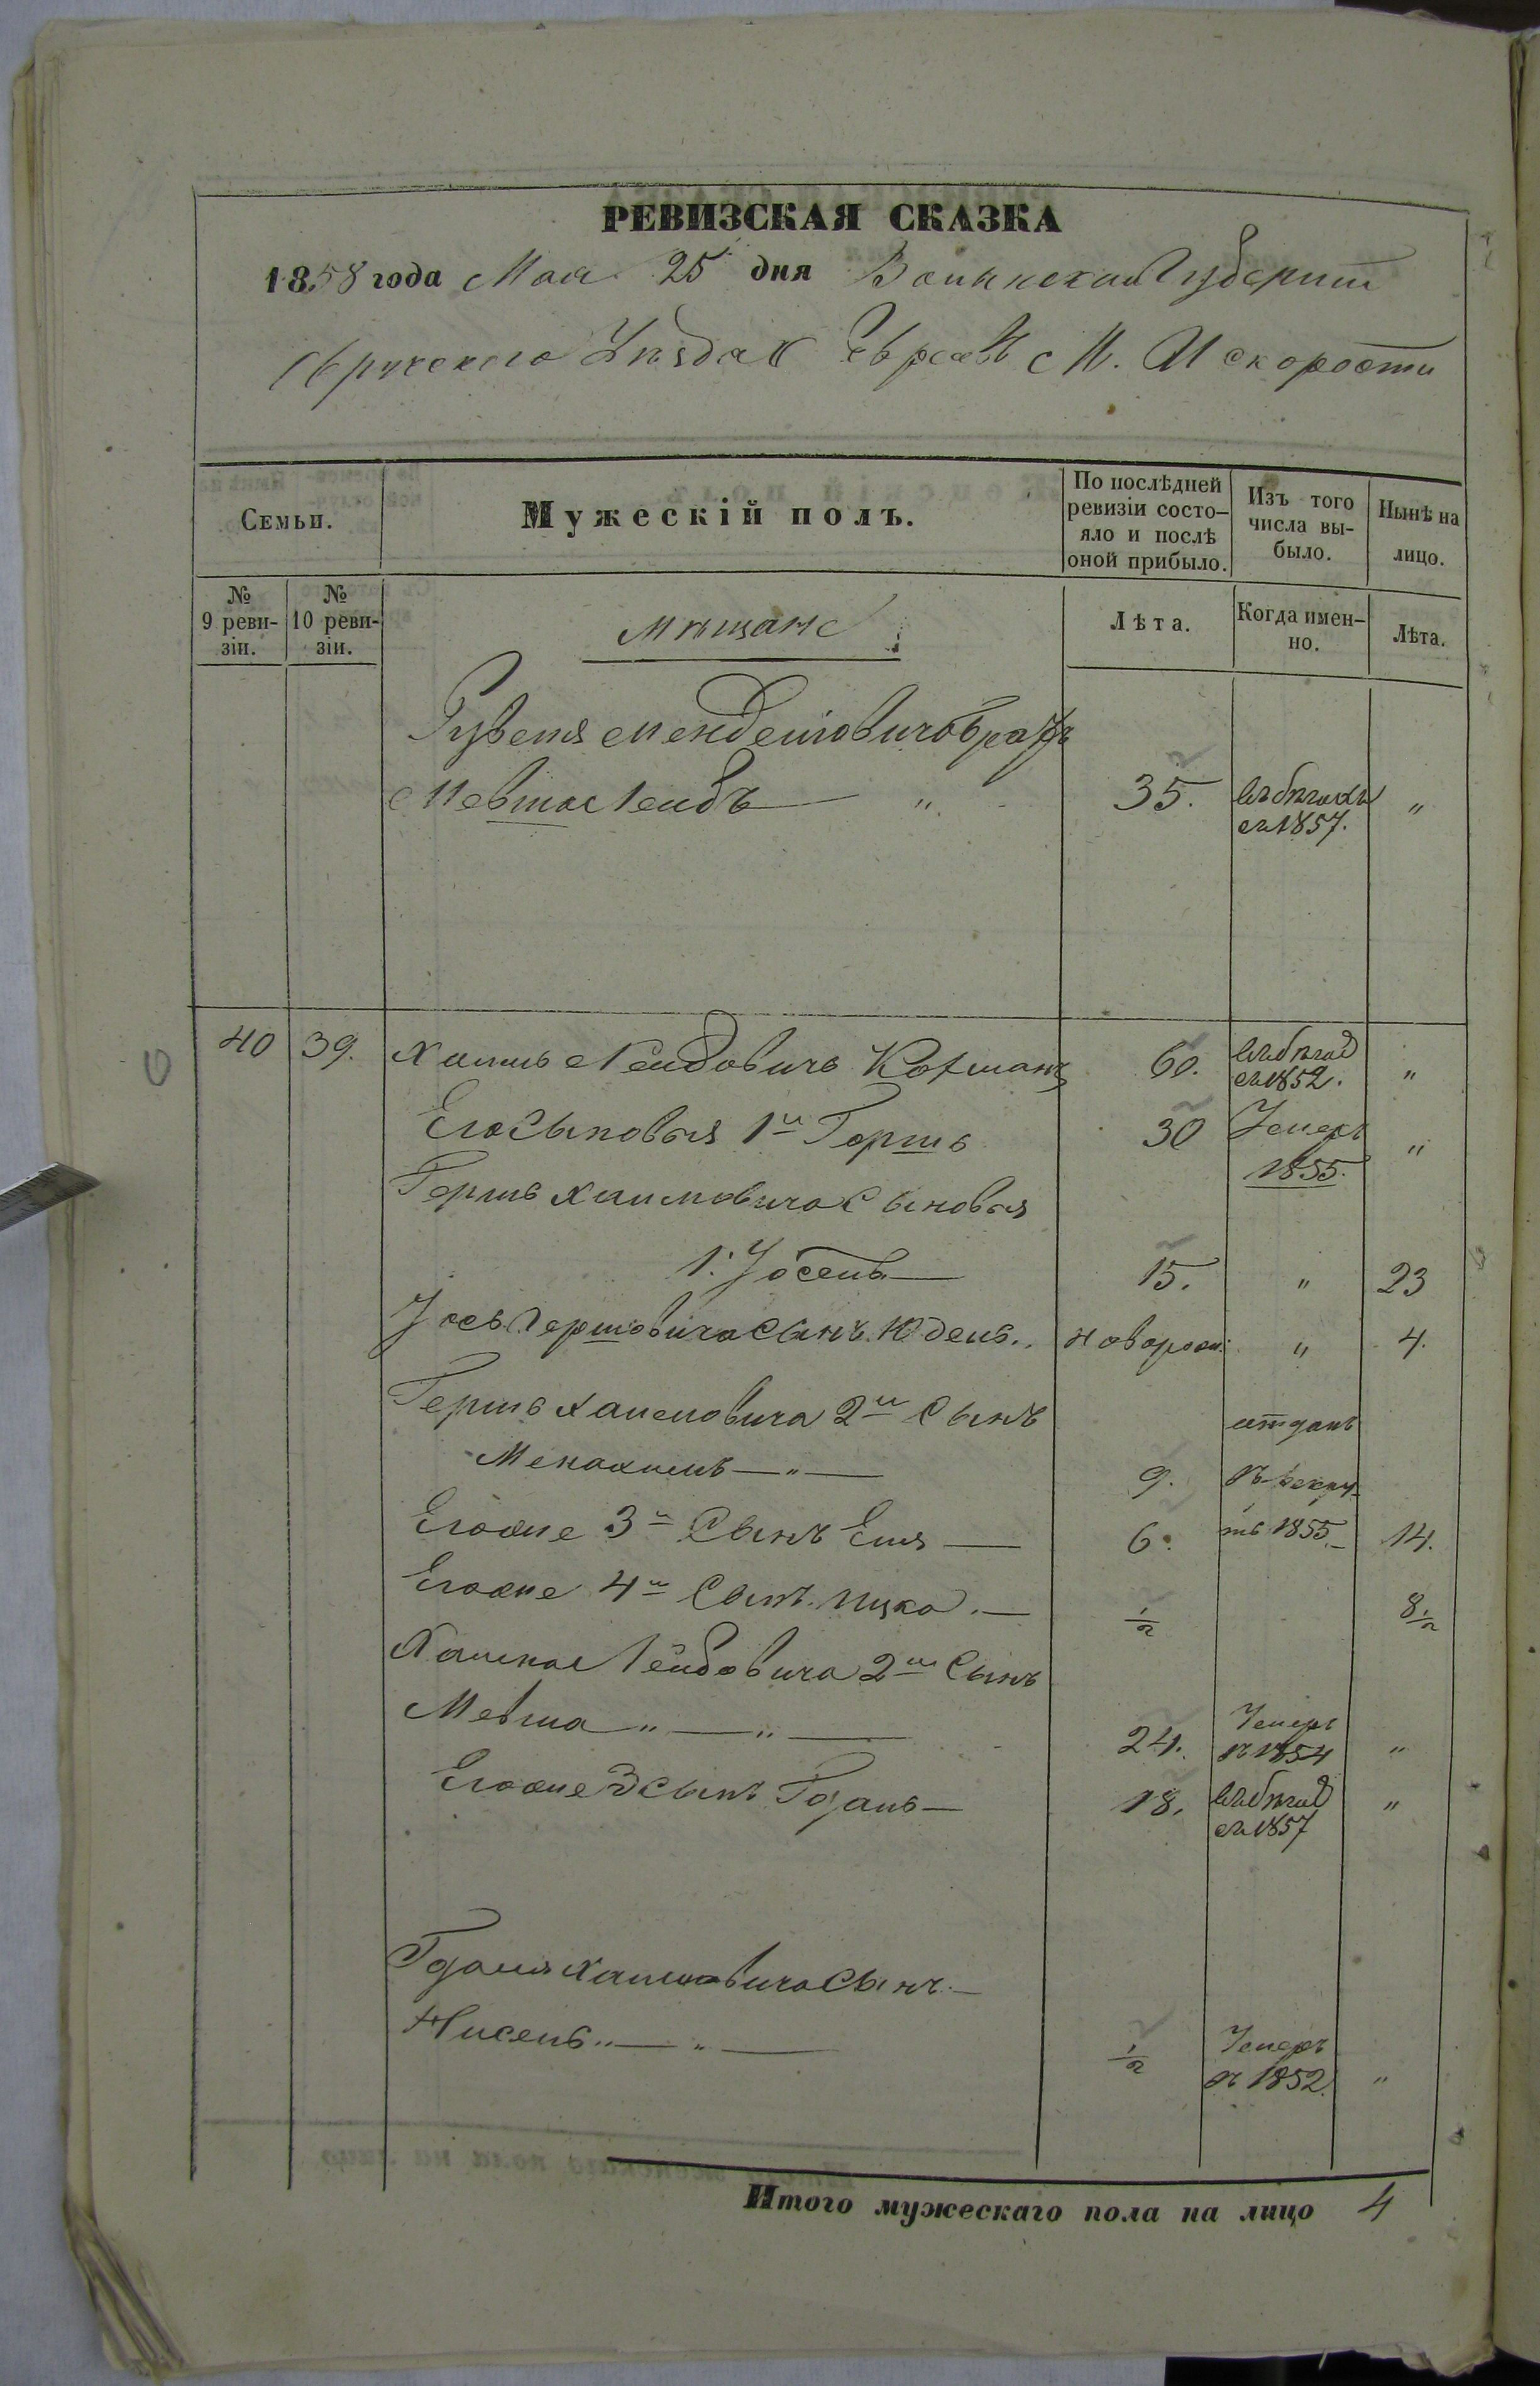 РЕВИЗСКАЯ СКАЗКА
1858 года Мая 25 дня Волынской Губерніи
Овручского Уѣзда Евреевъ М. Искорости
Семьи.
Мужескій полъ.
По послѣдней ревизіи состояло и послѣ оной прибыло.
Изъ того числа выбыло.
Нынѣ на лицо.
№ 9 ревизіи.
№ 10 ревизіи.
Мѣщане
Лѣта.
Когда именно.
Лѣта.
Рувеля Менделіовича братъ
Мевша Лейбъ " 35. въ бѣгахъ съ 1857. "
40 39. Хаимъ Лейбовичъ Кофманъ 60. въ бѣгах съ 1852. "
Его Сыновья 1й Гершь 30 Умеръ 1855. "
Гершь Хаимовича Сыновья
1. Иосель 15. " 23
Иось Гершовича Сынъ Юдель.. новорож: " 4.
Гершь Хаимовича 2й Сынъ
Менахимъ — " — 9. отданъ въ рекруты 1855.
Егоже 3й Сынъ Еля — 6. 14.
Егоже 4й Сынъ Ицко. — 1/2 8 1/2
Хаима Лейбовича 2й Сынъ
Мевша " — " — 24. Умеръ въ 1854 "
Егоже 3 сынъ Годаль — 18. въ бѣгах съ 1857 "
Годаля Хаимовича Сынъ —
Нисель " — " — 1/2 Умеръ въ 1852. "
Итого мужескаго пола на лицо 4